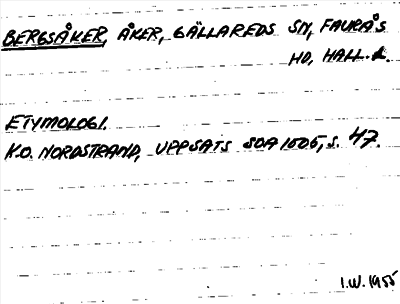 BERGSÅKER, ÅKER, GÄLLAREDS SN, FAURÅS
HD, HALL. L.
ETYMOLOGI.
K.O. NORDSTRAND, UPPSATS SOA 1505, S. 47.
I.W. 1955